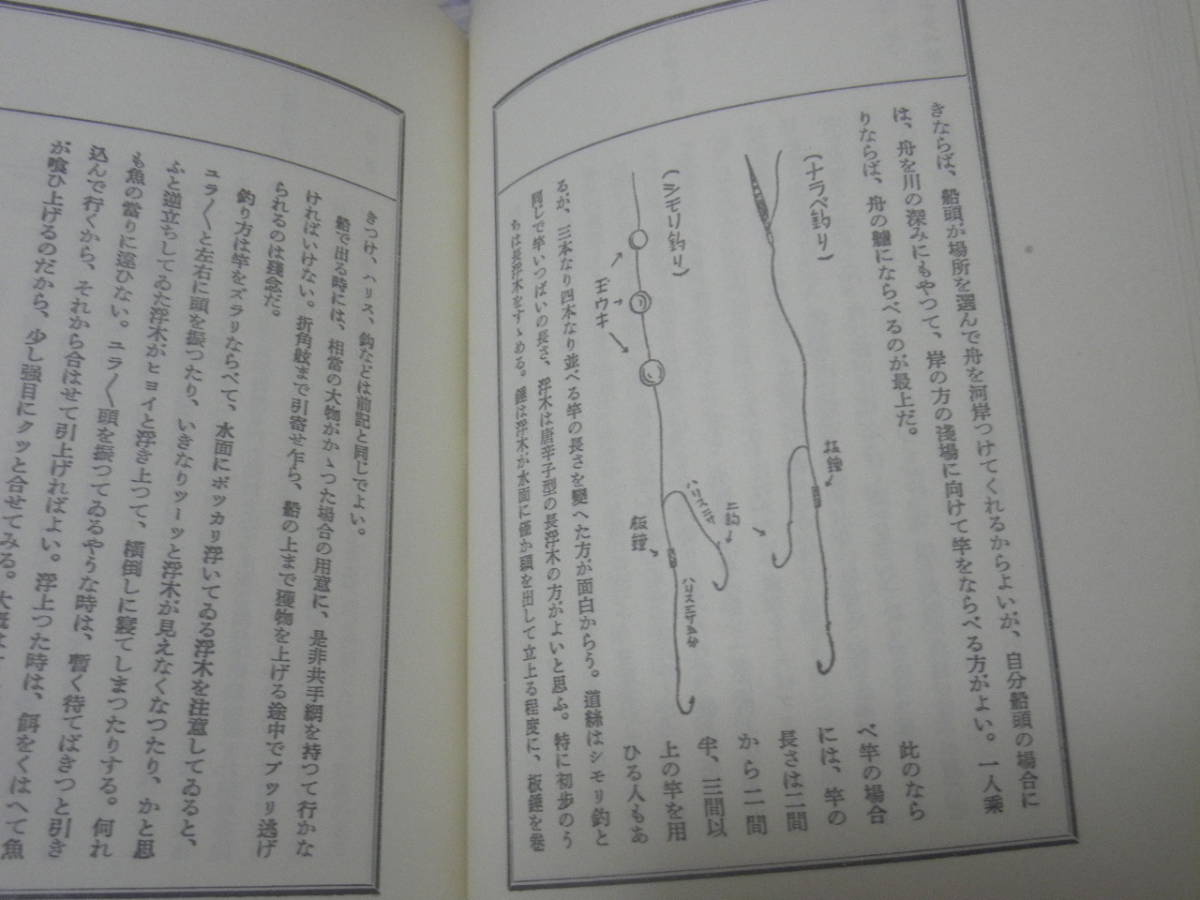 きならば、船頭が場所を選んで舟を河岸つけてくれるからよいが、自分船頭の場合に
は、舟を川の深みにもやつて、岸の方の浅場に向けて竿をならべる方がよい。一人乗
りならば、舟の艫にならべるのが最上だ。
(ナラベ釣り)
板錘
二鈎
(シモリ釣り)
玉ウキ
ハリス二寸
板錘
此のなら
べ竿の場合
には、竿の
長さは二間
から二間
半、三間以
上の竿を用
ひる人もあ
るが、三本なり四本なり並べる竿の長さを變へた方が面白からう。道絲はシモリ釣と
同じで竿いつぱいの長さ、浮木は唐辛子型の長浮木の方がよいと思ふ。特に初歩のう
ちは長浮木をすゝめる。錘は浮木が水面に僅か頭を出して立上る程度に、板錘を巻
きつけ、ハリス、鈎などは前記と同じでよい。
船で出る時には、相當の大物がかゝつた場合の用意に、是非共手網を持つて行かな
ければいけない。折角舷まで引寄せ乍ら、船の上まで獲物を上げる途中でプツリ逃げ
られるのは残念だ。
釣り方は竿をズラリならべて、水面にポツカリ浮いてゐる浮木を注意してゐると、
ユラ〱と左右に頭を振つたり、いきなりツーツと浮木が見えなくなつたり、かと思
ふと逆立ちしてゐた浮木がヒョイと浮き上つて、横倒しに寝てしまつたりする。何れ
も魚の當りに違ひない。ユラ〱頭を振つてゐるやうな時は、暫く待てばきつと引き
込んで行くから、それから合はせて引上げればよい。浮上つた時は、餌をくはへて魚
が喰ひ上げるのだから、少し強目にクッと合せてみる。大概は